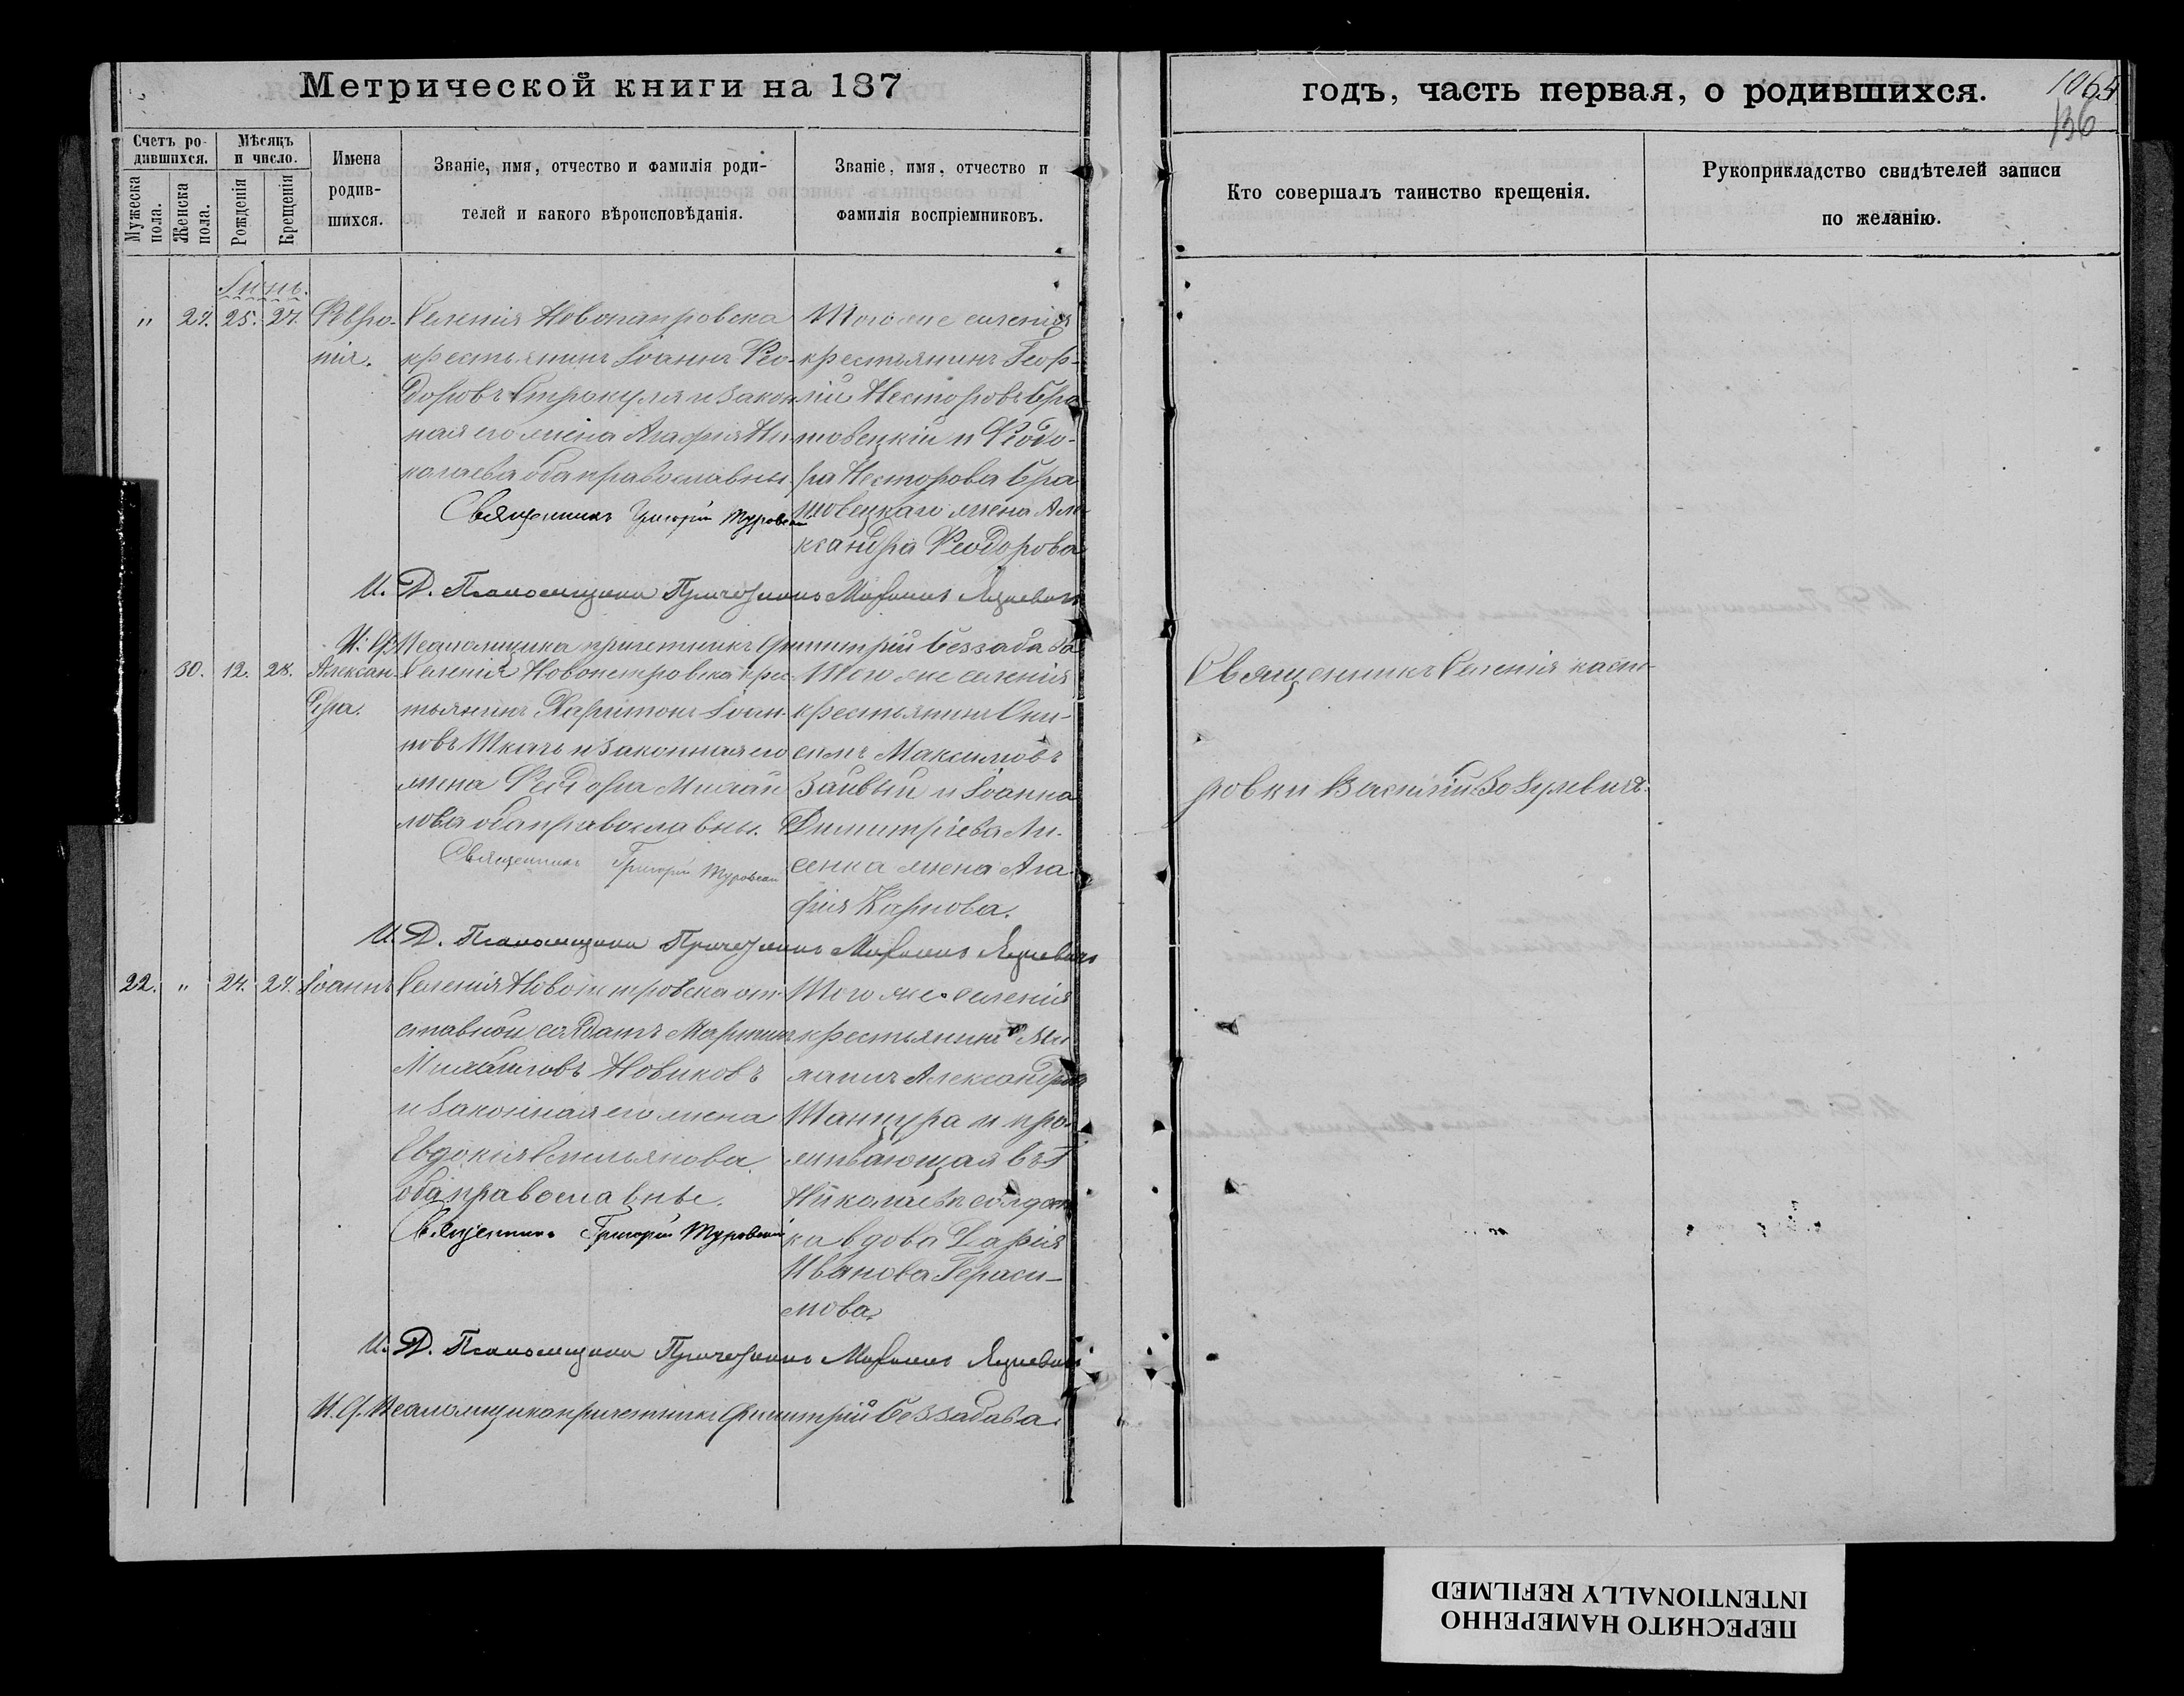 Метрической книги на 187
годъ, часть первая, о родившихся.
1065
136
Счетъ ро-
дившихся.
Мужеска
пола.
Женска
пола.
Мѣсяцъ
и число.
Рожденія
Крещенія
Имена
родив-
шихся.
Званіе, имя, отчество и фамилія роди-
телей и какого вѣроисповѣданія.
Званіе, имя, отчество и
фамилія воспріемниковъ.
Кто совершалъ таинство крещенія.
Рукоприкладство свидѣтелей записи
по желанію.
" 29. 25. 27.
Февро-
нія.
Селенія
крестьянинъ Іоаннъ Ѳео-
доровъ и закон-
ная его жена Агафія Ни-
колаева оба православны
Священникъ Григорій Туровскій
Того же селенія
крестьянинъ Геор-
гій Несторовъ Бра-
товецкій и Ѳеодо-
ра Несторова Бра-
товецкаго жена Але-
ксандра Ѳеодорова
И. Д. Псаломщика Причетникъ
И. Д. Псаломщика причетникъ Димитрій
30. 12. 28.
Алексан-
дра.
Селенія Новопетровска крес-
тьянинъ Харитонъ Іоан-
новъ Ткачъ и законная его
жена Ѳеодора Михай-
лова оба православны.
Священникъ Григорій Туровскій
Того же селенія
крестьянинъ Они-
симъ Максимовъ
и Іоанна
Димитріева Ли-
сенка жена Ага-
фія Карпова.
Священникъ Селенія Каспе-
ровки Василій
И. Д. Псаломщика Причетникъ
22. " 24. 29.
Іоаннъ
Селенія Новопетровска от-
ставной солдатъ Мартинъ
Михайловъ Новиковъ
и законная его жена
Евдокія Емельянова
оба православные.
Священникъ Григорій Туровскій
Того же селенія
крестьянинъ
Александровъ
и про-
живающая въ г.
Николаевѣ солдат-
ка вдова Дарія
Иванова Гераси-
мова.
И. Д. Псаломщика Причетникъ
И. Д. Псаломщика причетникъ Димитрій
ПЕРЕСНЯТО НАМЕРЕННО
INTENTIONALLY REFILMED